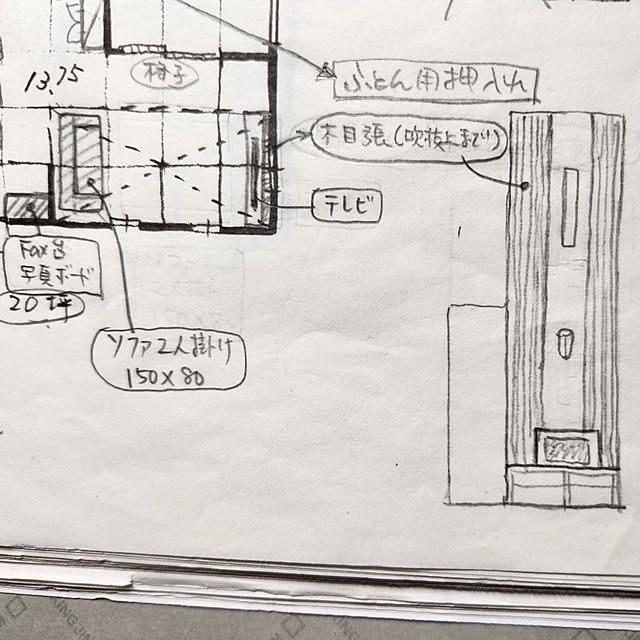 13.75
椅子
ふとん用押入れ
木目張(吹抜上まで)
テレビ
Fax台
写真ボード
20坪
ソファ2人掛け
150×80
KING JIM